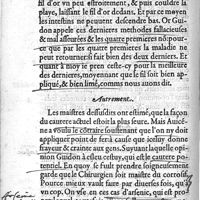 fil d'or vn peu estroittement, & puis couldre la
playe, laissant le fil d'or dedans. Et par ce moyen
les intestins ne peuuent descendre bas. Or Gui-
don appelle ces dernieres methodes fallacieuses
& mal asseurées & les quatre premieres nõ pour-
ce que par les quatre premieres la maladie ne
peut retourner si fait bien des deux derniers. Et
quant à moy ie pren ceste-cy pour la meilleure
des dernieres, moyennant que le fil soit bien ap-
pliqué, & bien limé, comme nous auons dit.
Autrement.
Les maistres dessusdits ont estimé, que la façon
du cautere actuel estoit la plus seure. Mais Auicẽ-
ne a voulu le cõtraire soustenant que l'on ny doit
appliquer point de fer à cause que iceluy donne
frayeur & crainte aux gens. Suyuant laquelle opi-
nion Guidon à esleu cestuy, qui est le cautere po-
tentiel. En quoy se fault prendre soigneusement
garde que le Chirurgien soit maistre du corrosif.
Pource mieux vault faire par diuerses fois, qu'à
vn coup. On vse en ces cas d'arsenic, qui est pro-